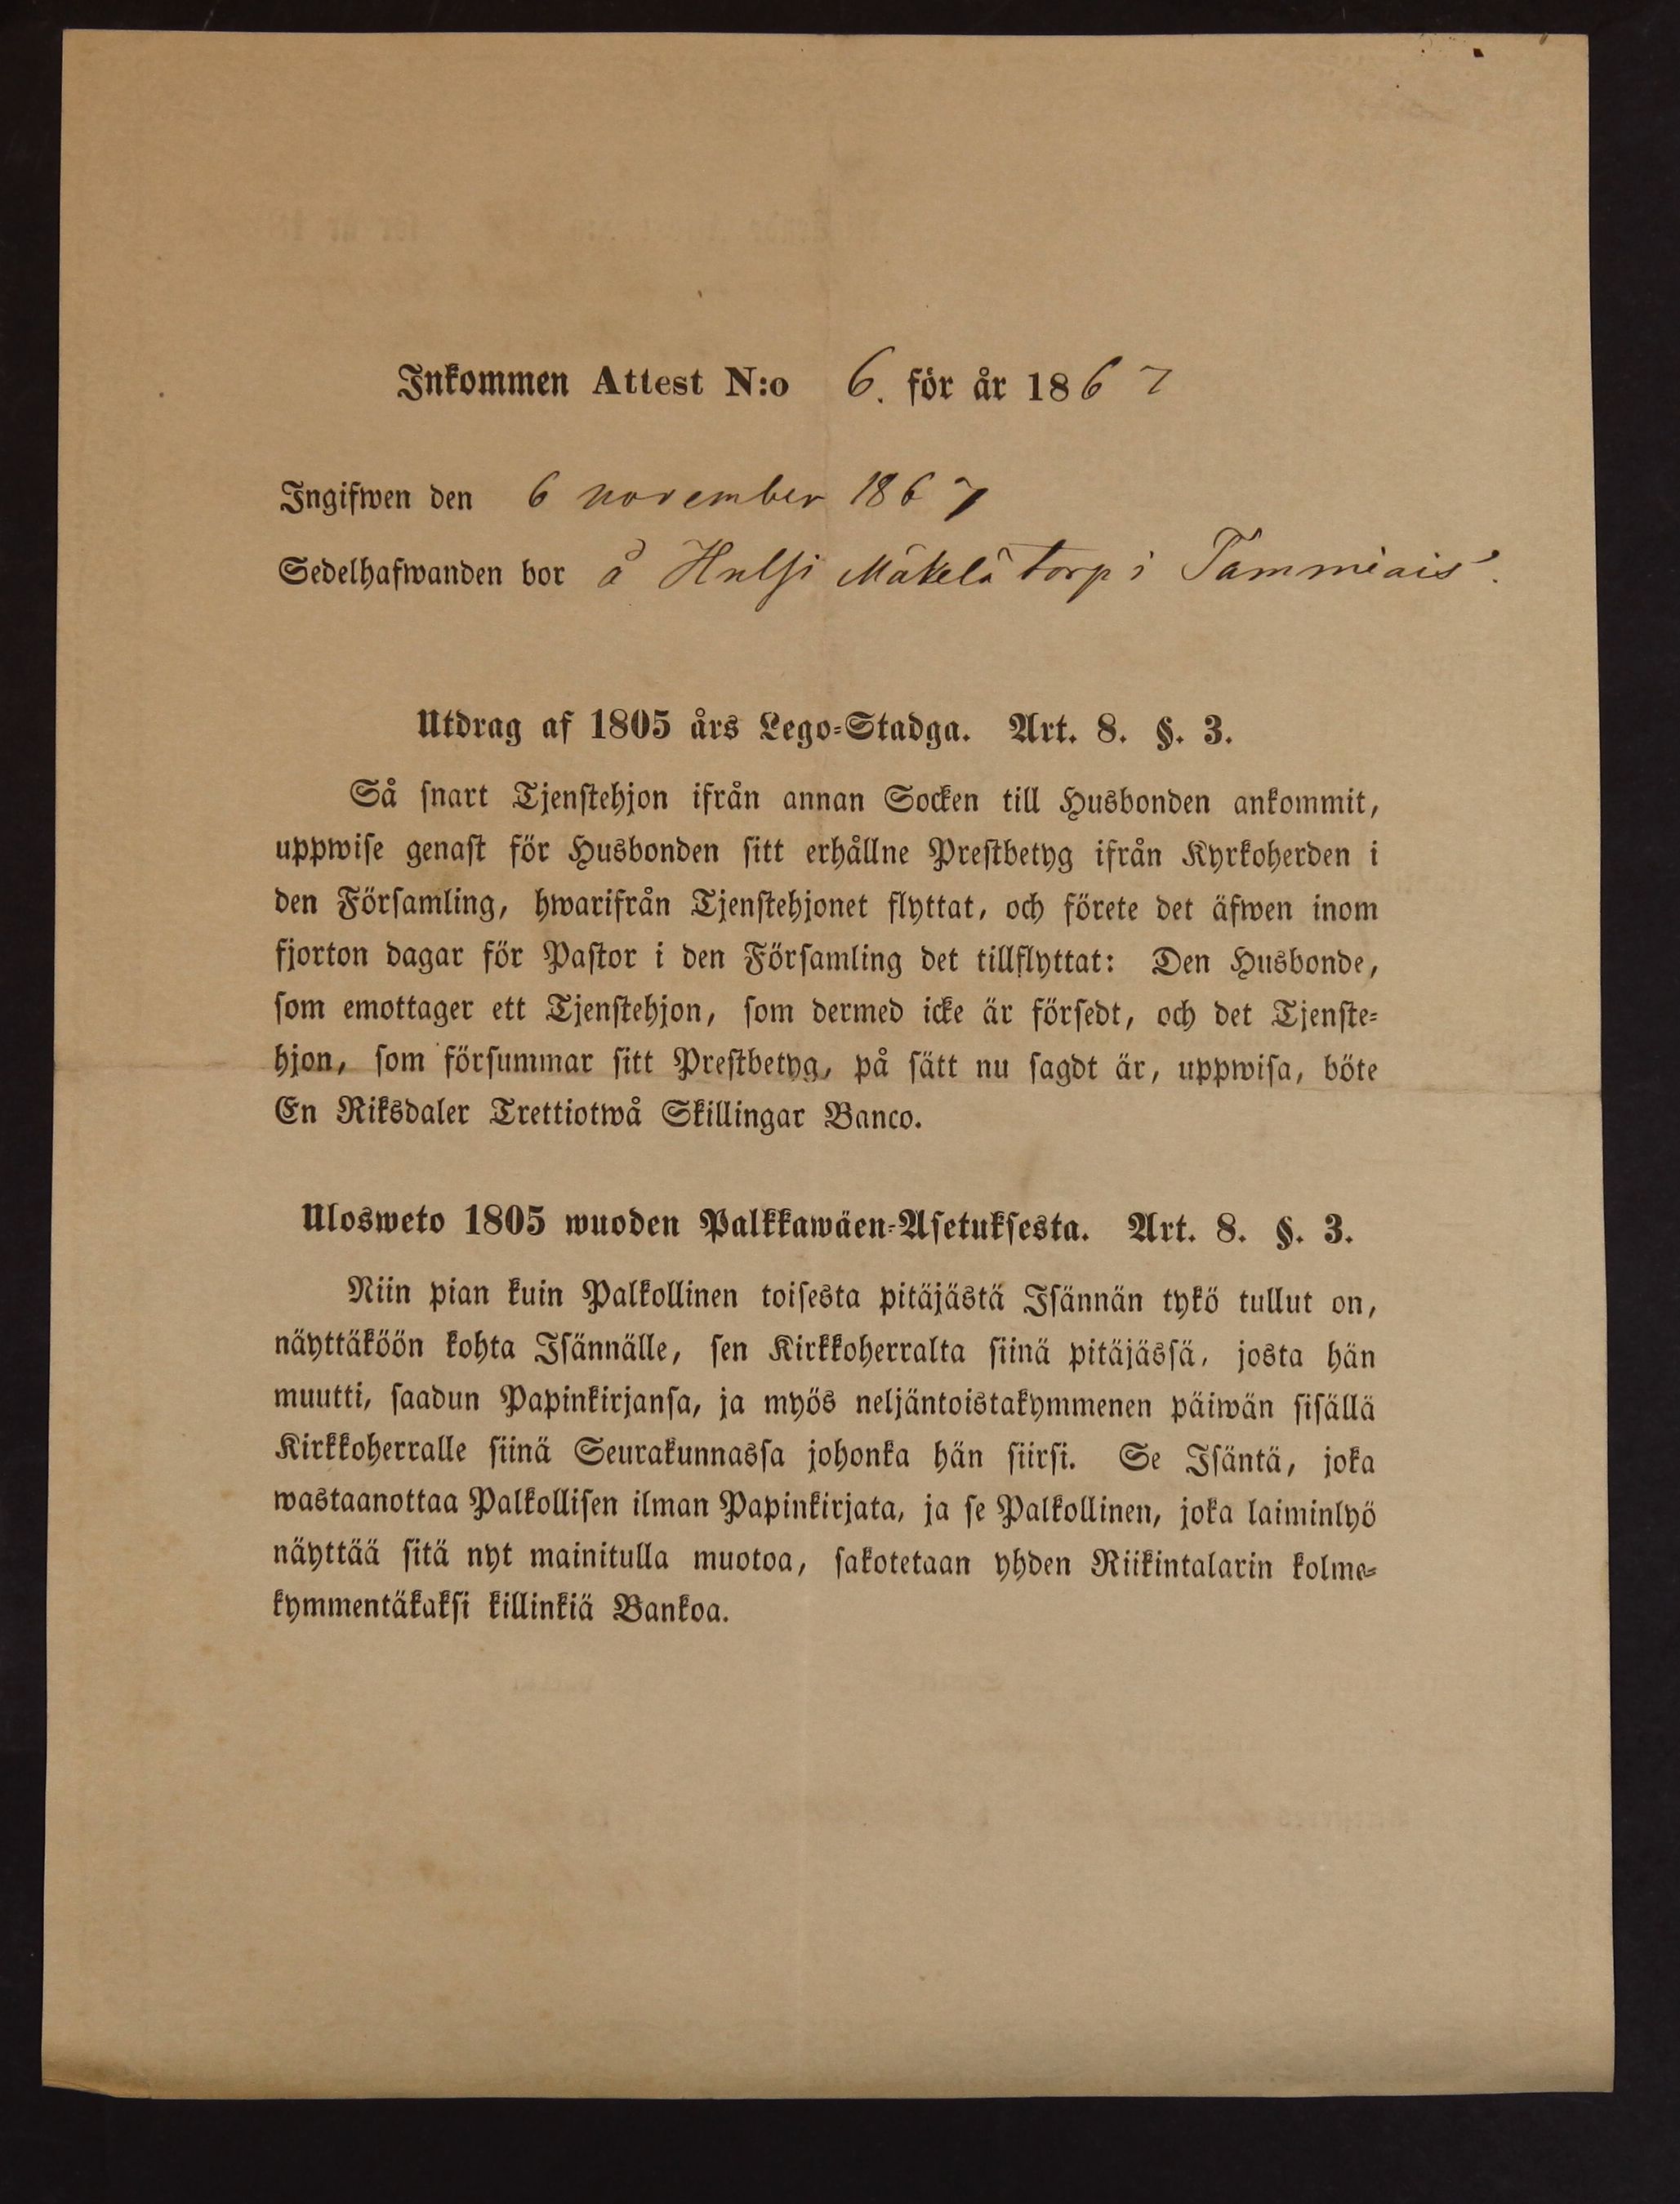 Inkommen Attest N:o 6. för år 1867
Ingifwen den 6 november 1867
Sedelhafwanden bor å Mäkelä torp i Tammiais.
Utdrag af 1805 års Lego-Stadga. Art. 8. §. 3.
Så snart Tjenstehjon ifrån annan Socken till Husbonden ankommit,
uppwise genast för Husbonden sitt erhållne Prestbetyg ifrån Kyrkoherden i
den Församling, hwarifrån Tjenstehjonet flyttat, och förete det äfwen inom
fjorton dagar för Pastor i den Församling det tillflyttat: Den Husbonde,
som emottager ett Tjenstehjon, som dermed icke är försedt, och det Tjenste-
hjon, som försummar sitt Prestbetyg, på sätt nu sagdt är, uppwisa, böte
En Riksdaler Trettiotwå Skillingar Banco.
Ulosweto 1805 wuoden Palkkawäen-Asetuksesta. Art. 8. §. 3.
Niin pian kuin Palkollinen toisesta pitäjästä Isännän tykö tullut on,
näyttäköön kohta Isännälle, sen Kirkkoherralta siinä pitäjässä, josta hän
muutti, saadun Papinkirjansa, ja myös neljäntoistakymmenen päiwän sisällä
Kirkkoherralle siinä Seurakunnassa johonka hän siirsi. Se Isäntä, joka
wastaanottaa Palkollisen ilman Papinkirjata, ja se Palkollinen, joka laiminlyö
näyttää sitä nyt mainitulla muotoa, sakotetaan yhden Riikintalarin kolme-
kymmentäkaksi killinkiä Bankoa.